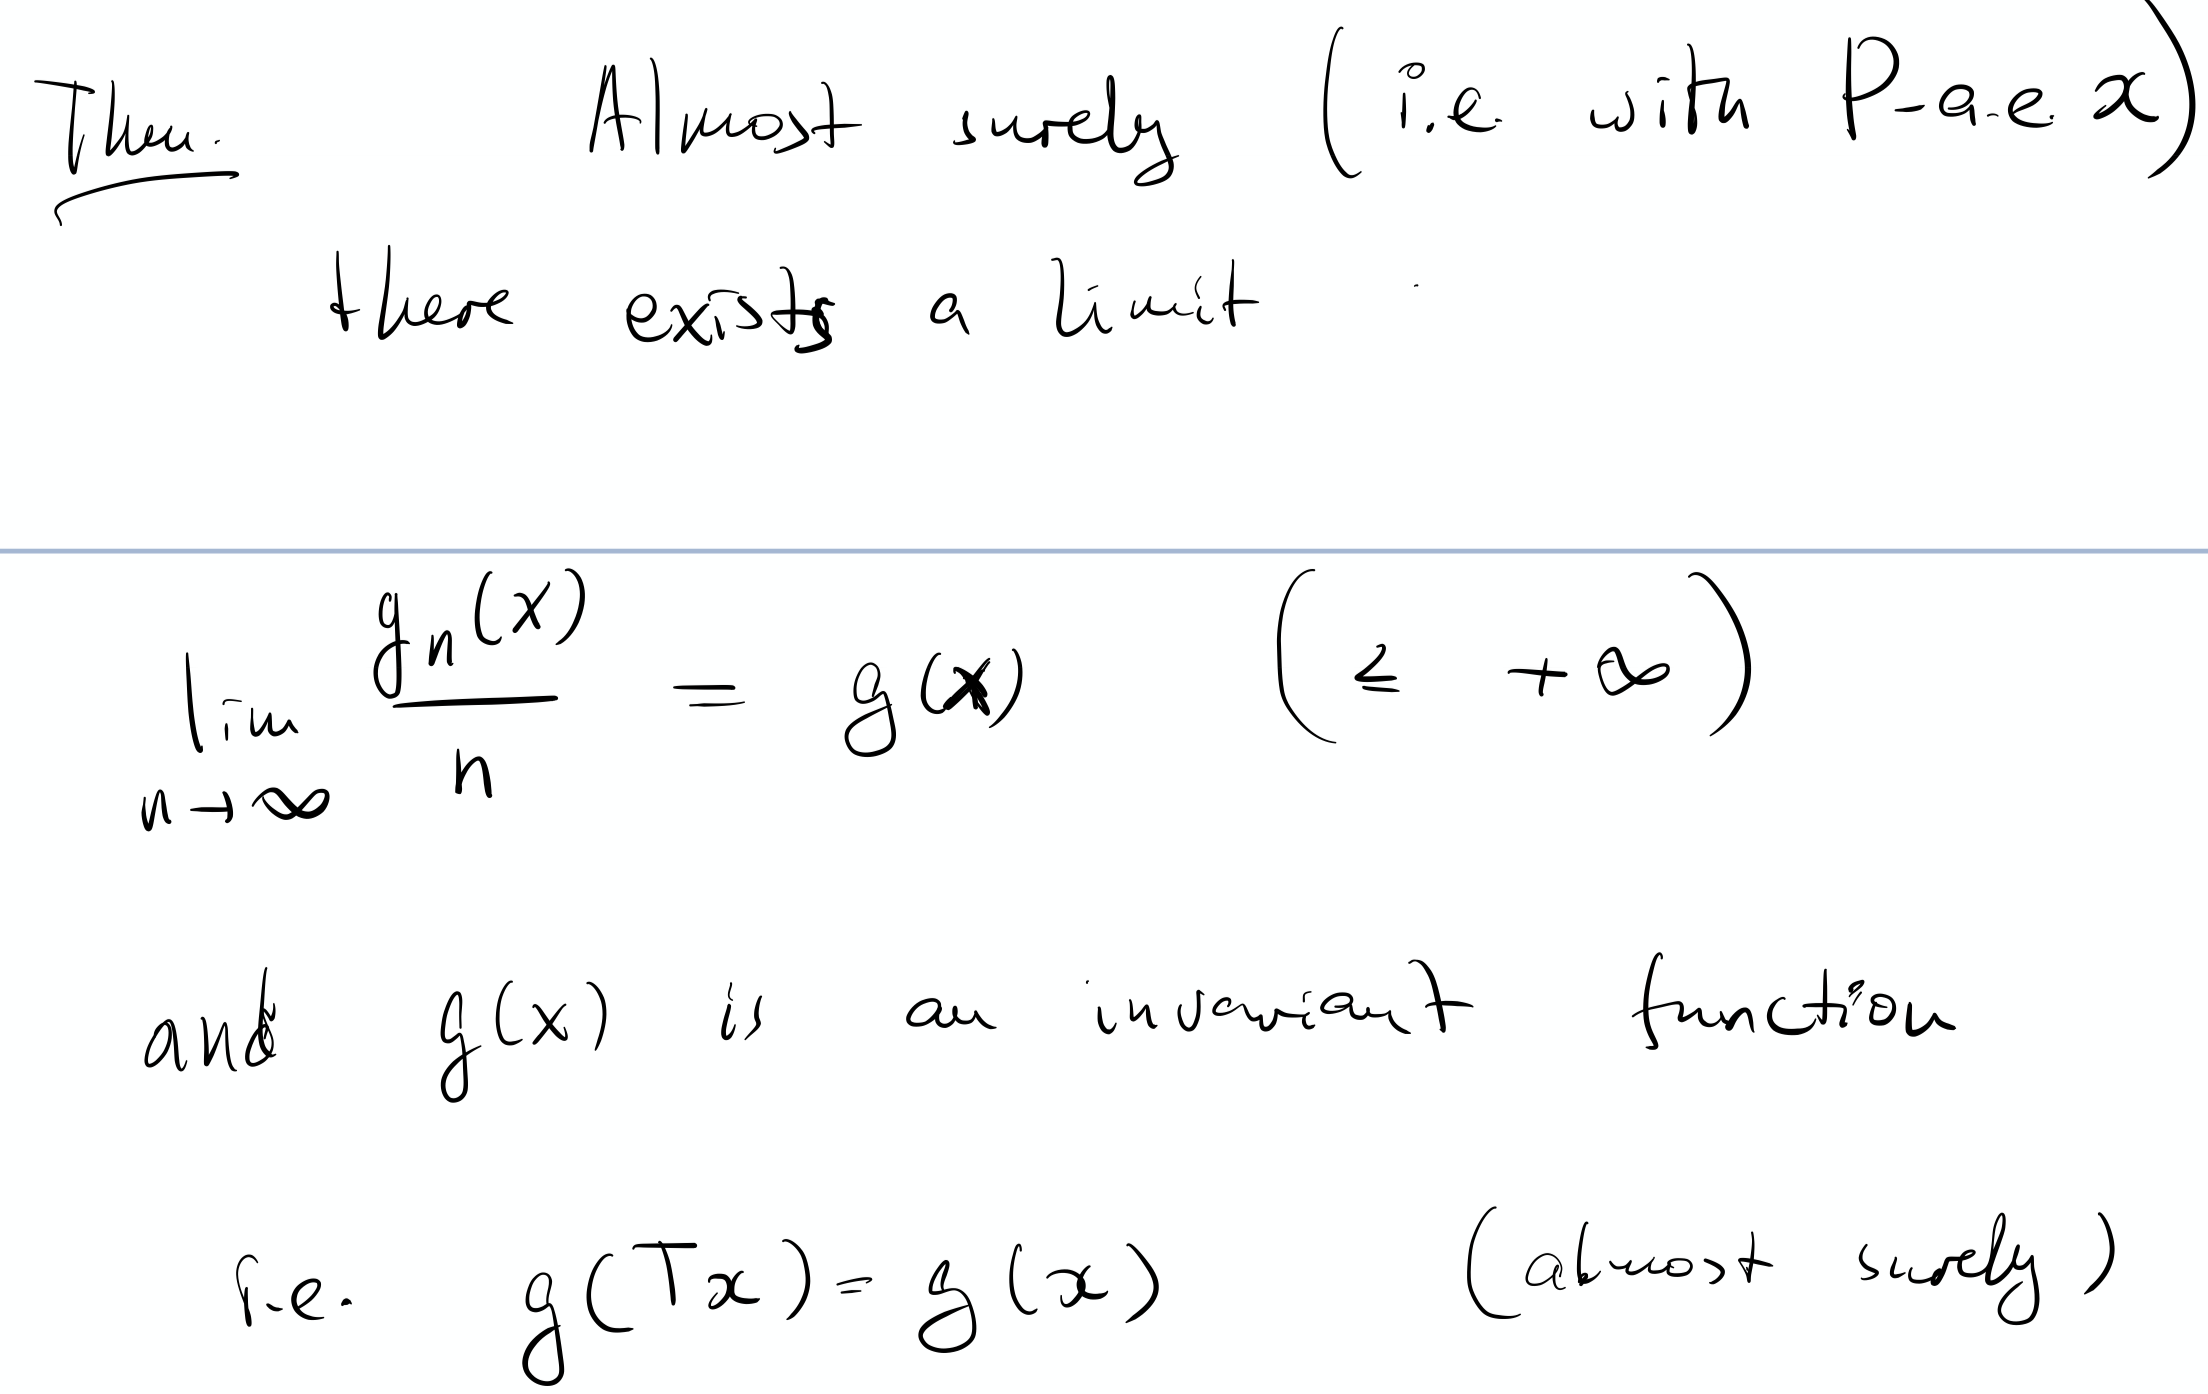 Thm. Almost surely (i.e. with P-a.e. x)
there exists a limit
lim_{n→∞} g_n(x)/n = g(x) (≤ +∞)
and g(x) is an invariant function
i.e. g(Tx) = g(x) (almost surely)